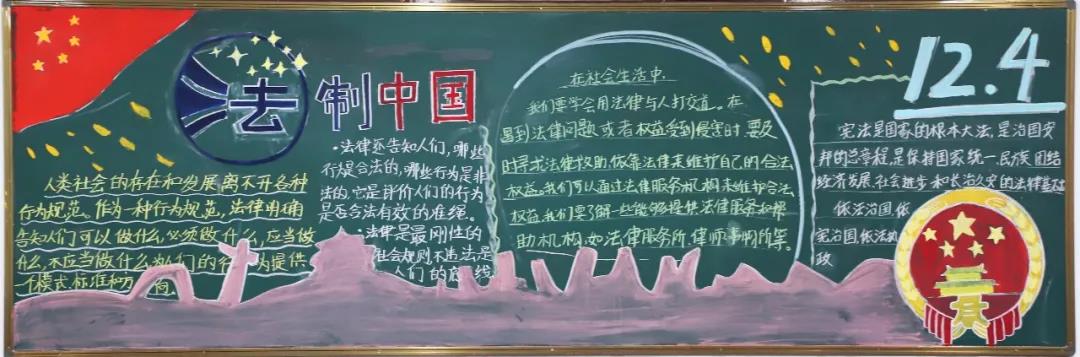 法制中国
人类社会的存在和发展离不开各种
行为规范。作为一种行为规范，法律明确
告知人们可以做什么，必须做什么，应当做
什么，不应当做什么，为人们的行为提供
一个模式、标准和方向
·法律还告知人们，哪些
行为是合法的，哪些行为是非
法的，它是评价人们的行为
是否合法有效的准绳。
·法律是最刚性的
社会规则，不违法是
人们的底线
在社会生活中，
我们要学会用法律与人打交道。在
遇到法律问题或者权益受到侵害时，要及
时寻求法律救助，依靠法律来维护自己的合法
权益。我们可以通过法律服务机构来维护合法
权益，我们要了解一些能够提供法律服务和帮
助机构，如法律服务所、律师事务所等。
12.4
宪法是国家的根本大法，是治国安
邦的总章程，是保持国家统一、民族团结
经济发展、社会进步和长治久安的法律基础
依法治国，依
宪治国，依法执
政